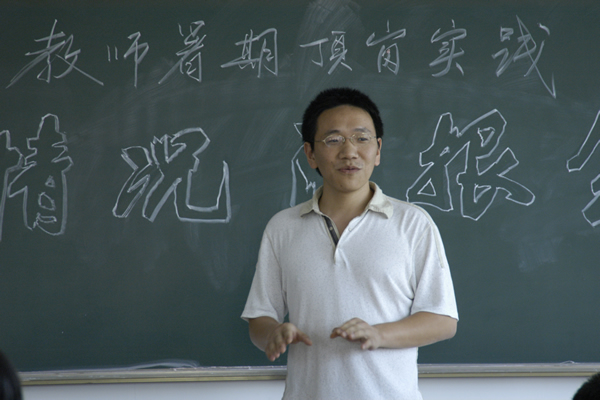 教师署期顶岗实践
情况 报